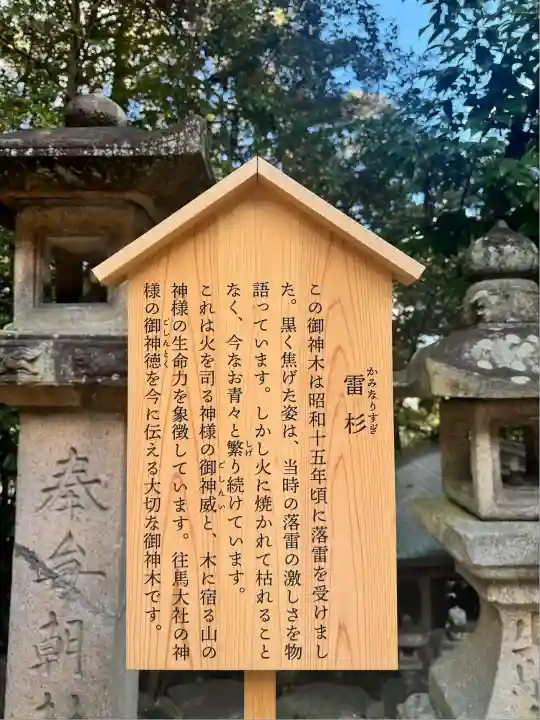 雷杉
かみなりすぎ
この御神木は昭和十五年頃に落雷を受けまし
た。黒く焦げた姿は、当時の落雷の激しさを物
語っています。しかし火に焼かれて枯れること
なく、今なお青々と繁り続けています。
しげ
これは火を司る神様の御神威と、木に宿る山の
ごしんい
神様の生命力を象徴しています。往馬大社の神
様の御神徳を今に伝える大切な御神木です。
ごしんとく
奉
朝